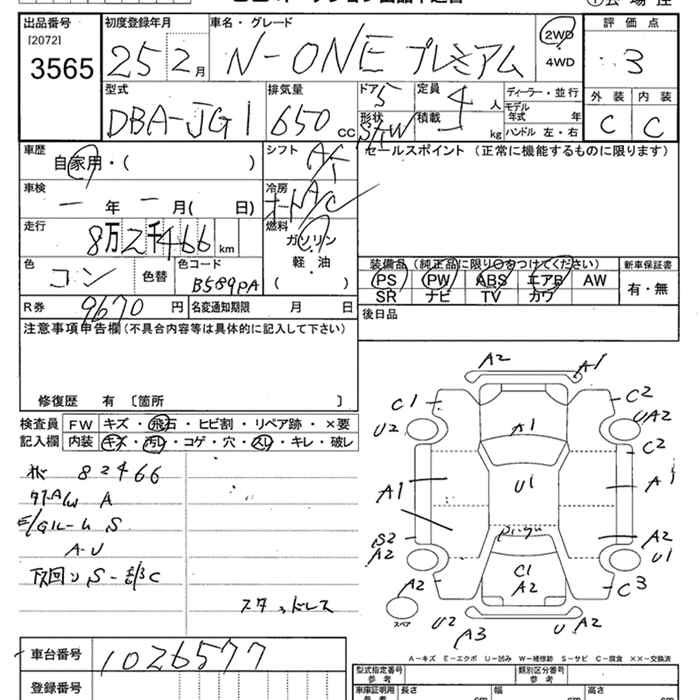 出品番号
[2072]
3565
初度登録年月
25 2月
車名・グレード
N-ONE プレミアム
2WD
4WD
評価点
3
型式
DBA-JG1
排気量
650 cc
ドア
5
形状
S/W
定員
4人
積載
kg
ディーラー・並行
モデル年式 年
ハンドル 左・右
外装 内装
C C
車歴
自家用・( )
シフト
AT
車検
ー年ー月( 日)
冷房
オートA/C
走行
8万2千466km
燃料
ガソリン
軽・油
( )
色
コン
色替
色コード
B589PA
R券
9670円
名変通知期限 月 日
セールスポイント (正常に機能するものに限ります)
装備品 (純正品に限り○をつけてください)
PS PW ABS エアB AW
SR ナビ TV カワ
新車保証書
有・無
後日品
注意事項申告欄(不具合内容等は具体的に記入して下さい)
修復歴 有 〔箇所 〕
検査員記入欄
FW キズ・飛石・ヒビ割・リペア跡・×要
内装 キズ・汚レ・コゲ・穴・スレ・キレ・破レ
82466
A
E/Gルーム S
A-U
下回り S-
スタッドレス
A2
A1
C1
C2
U2
UA2
A1
C2
A1
U1
A1
S2
A2
A2
U1
C1
A2
C3
A2
スペア
U2
A3
U
A2
A-キズ E-エクボ U-凹み W-補修跡 S-サビ C-腐食 ××-交換済
車台番号
1026577
登録番号
型式指定番号
参考
類別区分番号
参考
車庫証明用
参考
長さ cm
幅 cm
高さ cm